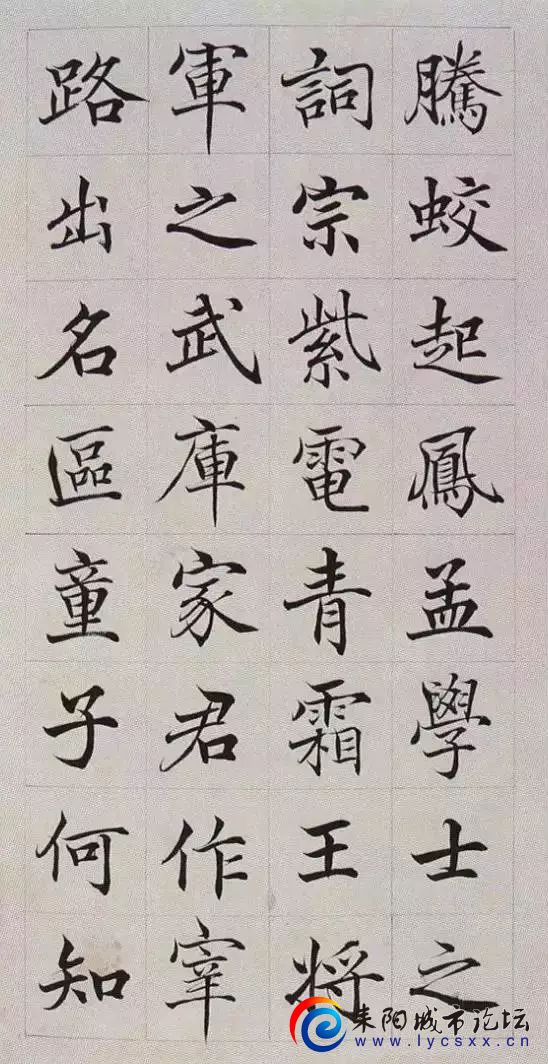 騰蛟起鳳孟學士之
詞宗紫電青霜王將
軍之武庫家君作宰
路出名區童子何知
耒阳城市论坛
www.lycsxx.cn